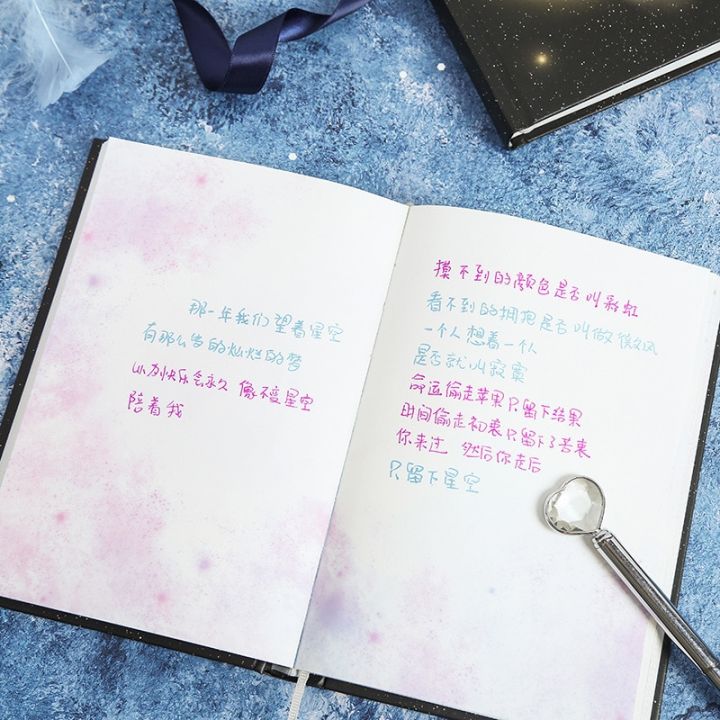 那一年我们望着星空
有那么多的灿烂的梦
以为快乐会永久 像不变星空
陪着我
摸不到的颜色是否叫彩虹
看不到的拥抱是否叫做微风
一个人想着一个人
是否就叫寂寞
命运偷走苹果只留下结果
时间偷走初衷只留下了苦衷
你来过 然后你走后
只留下星空